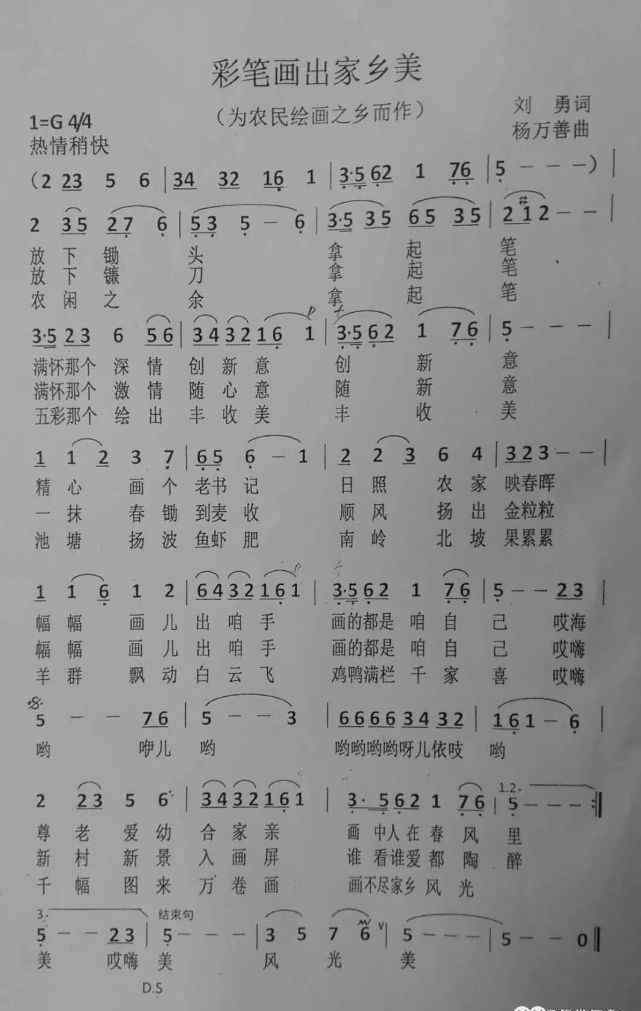 彩笔画出家乡美
（为农民绘画之乡而作）
1=G 4/4
刘 勇词
热情稍快
杨万善曲
（2 23 5 6 | 34 32 16 1 | 3·5 62 1 76 | 5 - - - ）|
2 35 27 6 | 53 5 - 6 | 3·5 35 65 35 | 2 1 2 - - |
放 下 锄 头 拿 起 笔
放 下 镰 刀 拿 起 笔
农 闲 之 余 拿 起 笔
3·5 23 6 56 | 34 32 16 1 | 3·5 62 1 76 | 5 - - - |
满怀那个 深 情 创 新 意 创 新 意
满怀那个 激 情 随 心 意 随 新 意
五彩那个 绘 出 丰 收 美 丰 收 美
1 1 2 3 7 | 65 6 - 1 | 2 2 3 6 4 | 323 - - |
精 心 画 个 老书 记 日 照 农 家 映春晖
一 抹 春 锄 到麦 收 顺 风 扬 出 金粒粒
池 塘 扬 波 鱼虾 肥 南 岭 北 坡 果累累
1 1 6 1 2 | 64 32 161 | 3·5 62 1 76 | 5 - - 23 |
幅 幅 画 儿 出 咱 手 画的都是 咱 自 己 哎海
幅 幅 画 儿 出 咱 手 画的都是 咱 自 己 哎嗨
羊 群 飘 动 白 云 飞 鸡鸭满栏 千 家 喜 哎嗨
5 - - 76 | 5 - - 3 | 6666 34 32 | 161 - 6 |
哟 咿儿 哟 哟哟哟哟呀儿依吱 哟
2 23 5 6 | 34 32 161 | 3· 5 62 1 76 | 1.2. 5 - - - :‖
尊 老 爱 幼 合 家 亲 画 中人 在 春 风 里
新 村 新 景 入 画 屏 谁 看谁 爱 都 陶 醉
千 幅 图 来 万 卷 画 画不尽家乡 风 光
3. 结束句
5 - - 23 | 5 - - - | 3 5 7 6 ∨ | 5 - - - | 5 - - 0 ‖
美 哎嗨 美 风 光 美
D.S